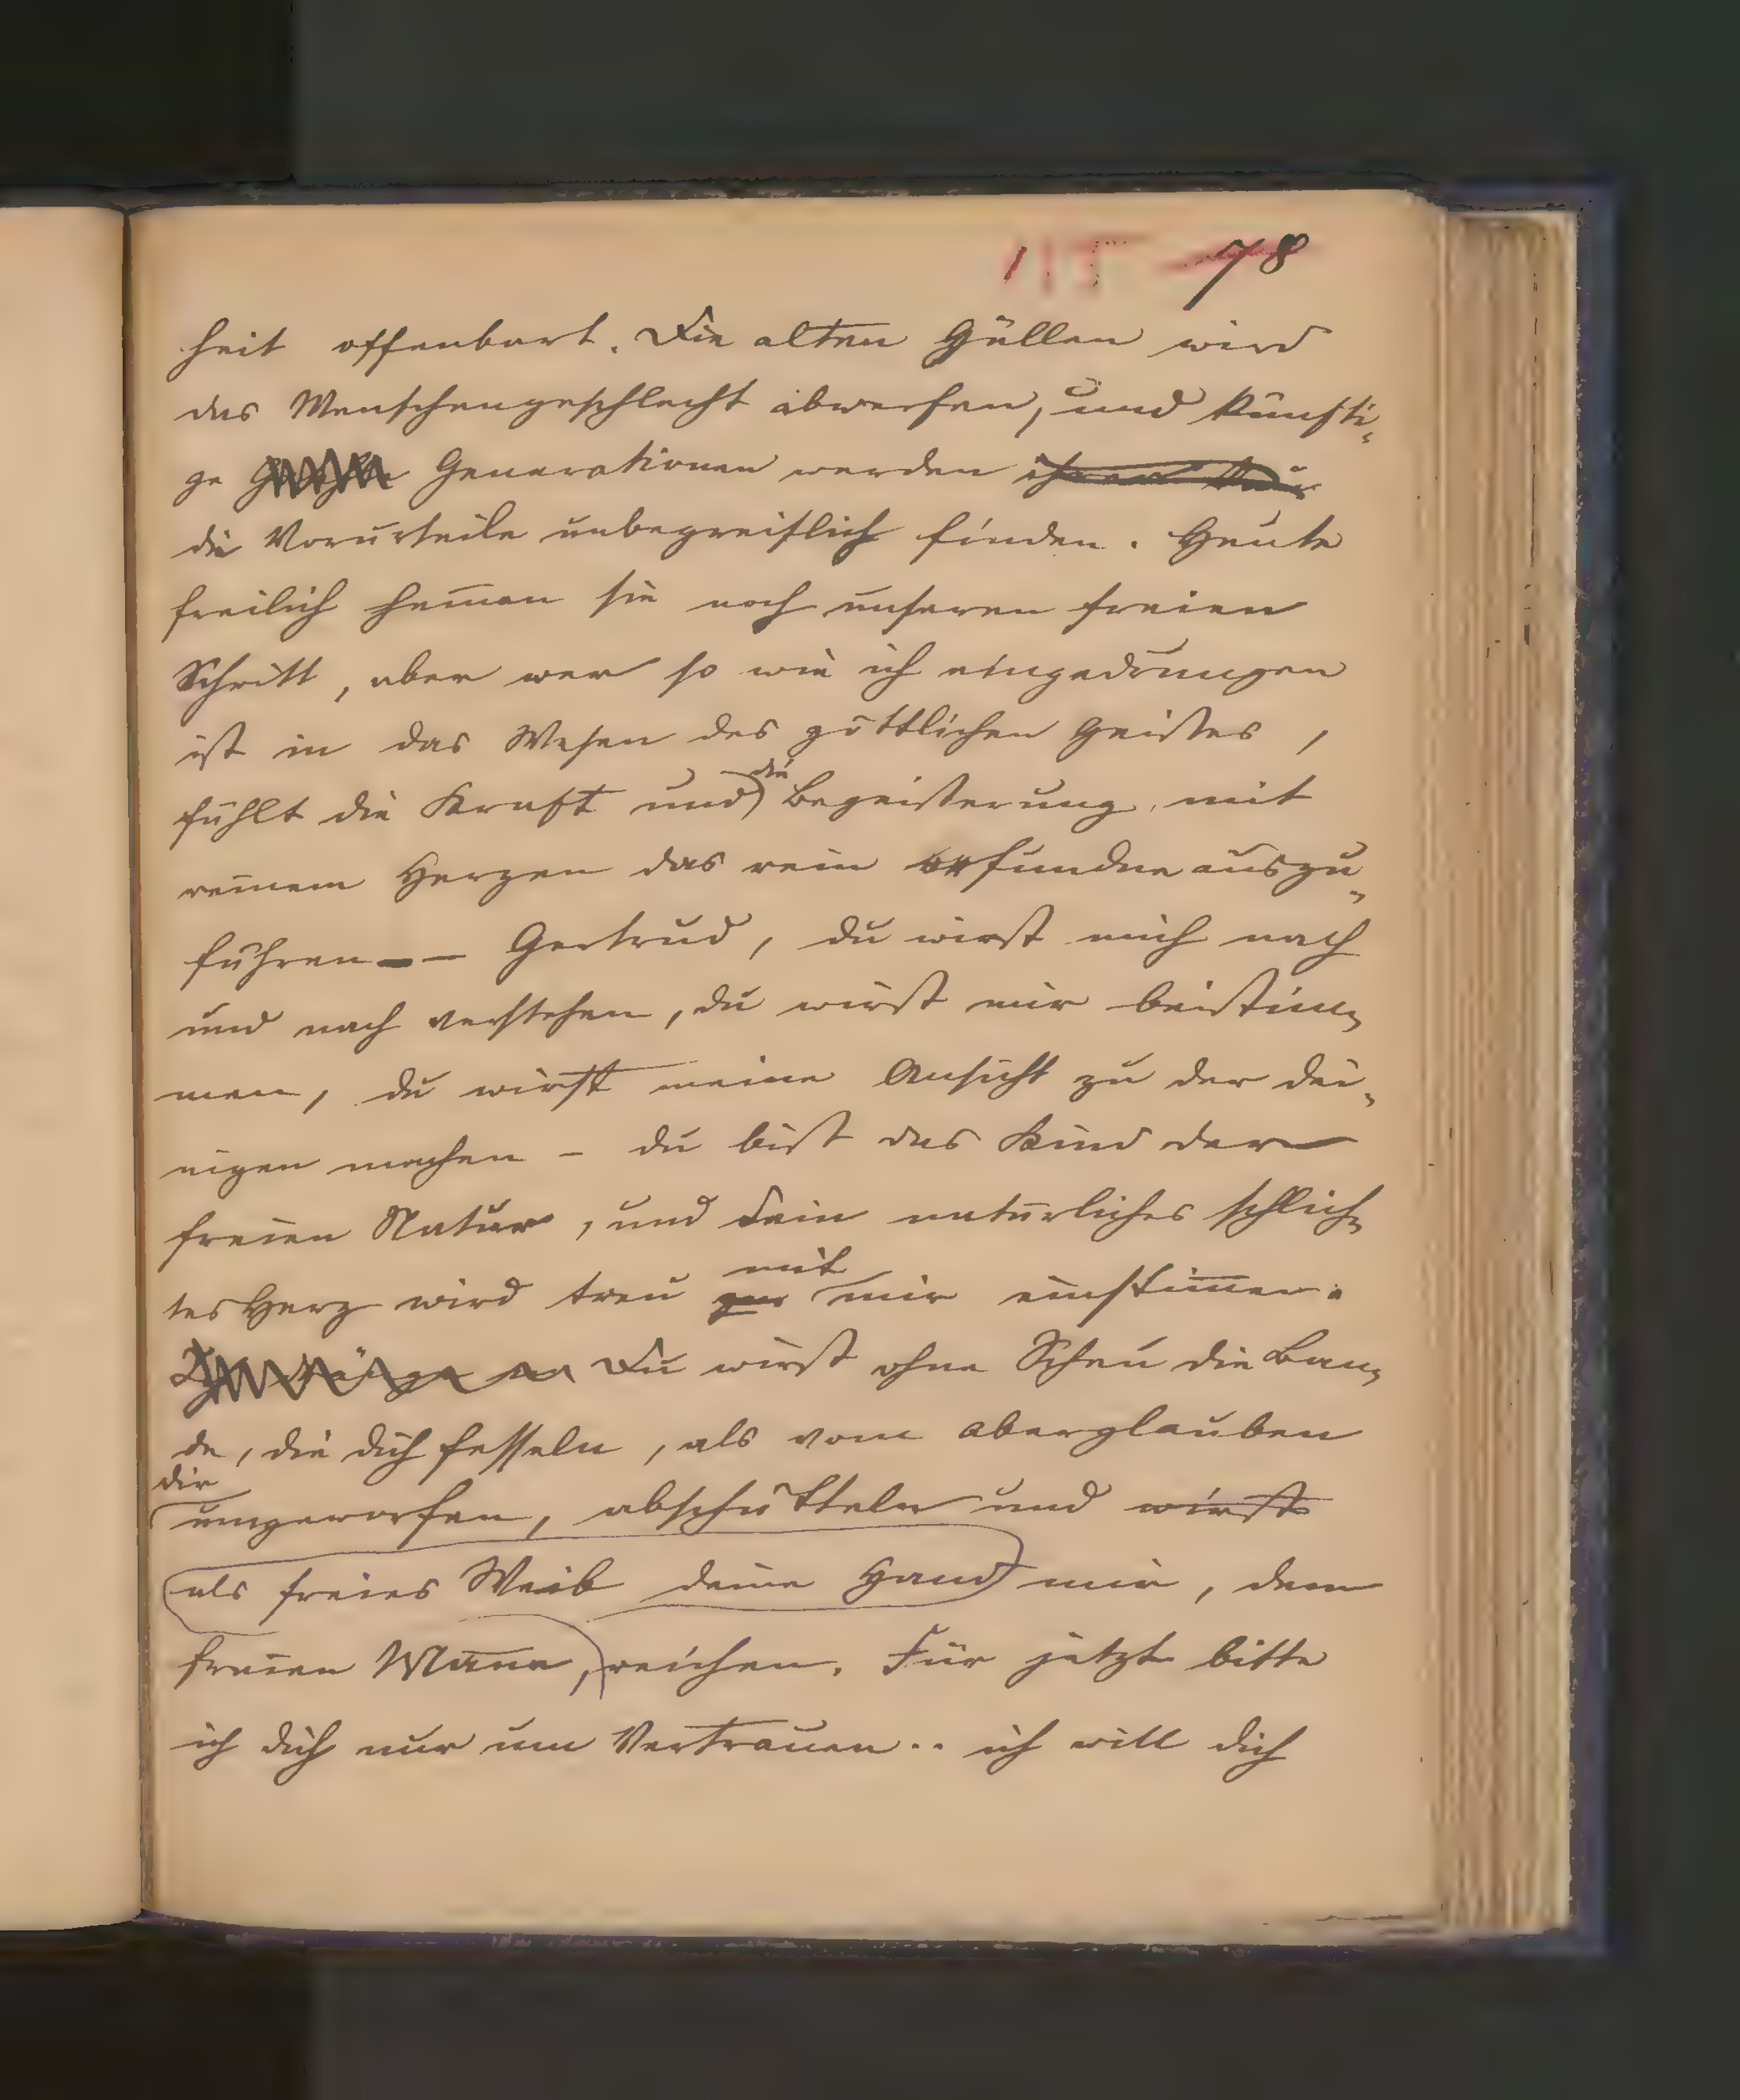 115 78
heit offenbart. Die alten Hüllen wird
das Menschengeschlecht abwerfen, und künfti-
ge Generationen werden ihren
die Vorurteile unbegreiflich finden. Heute
freilich hem̅en sie noch unseren freien
Schritt, aber wer so wie ich eingedrungen
ist in das Wesen des göttlichen Geistes,
die
fühlt die Kraft und Begeisterung, mit
reinem Herzen das rein erfundne auszu-
führen – – Gertrud, du wirst mich nach
und nach verstehen, du wirst mir beistim-
men, du wirst meine Ansicht zu der dei-
nigen machen – du bist das Kind der
freien Natur, und Dein natürliches schlich-
mit
tes Herz wird treu zu mir einstim̅en.
Du wirst ohne Scheu die Ban-
de, die dich fesseln, als vom Aberglauben
dir
umgeworfen, abschütteln und wirst
als freies Weib deine Hand mir, dem
freien Manne, reichen. Für jetzt bitte
ich dich nur um Vertrauen.. ich will dich